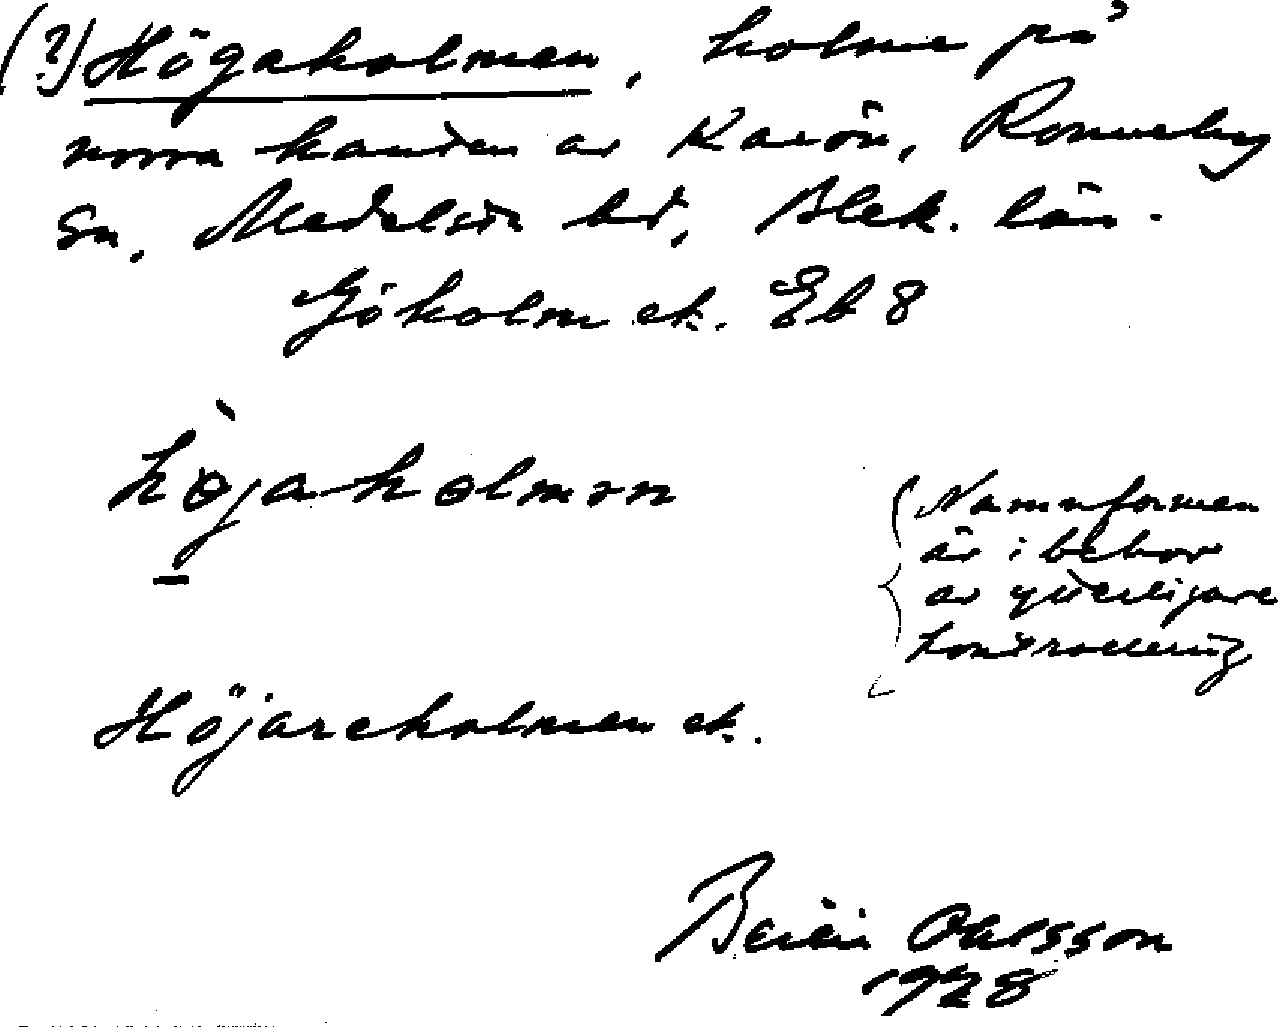 (?) Högaholmen, holme på
norra kanten av Karön, Ronneby
sn, Medelsta hd, Blek. län.
Gökolm ek. Eb 8
hòjaholmən
Namnformen
är i behov
av ytterligare
kontrollering
Höjareholmen ek.
Ohlsson
1928